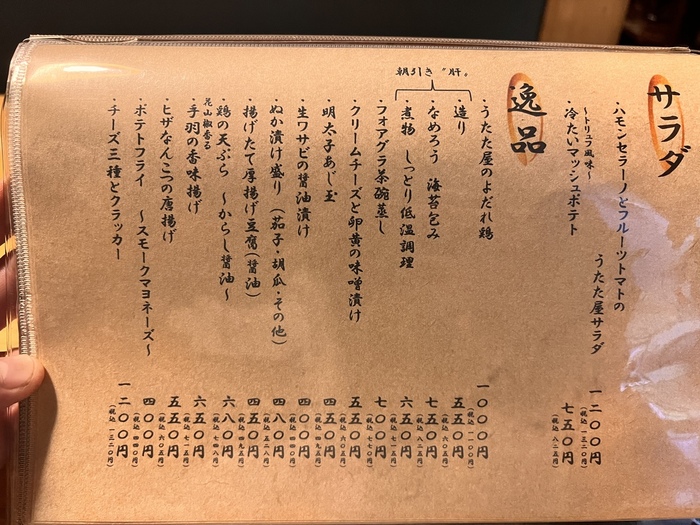 サラダ
・ハモンセラーノとフルーツトマトの
うたた屋サラダ 一二〇〇円
（税込 一三二〇円）
～トリュフ風味～
・冷たいマッシュポテト 七五〇円
（税込 八二五円）
逸品
・うたた屋のよだれ鶏 一〇〇〇円
（税込 一一〇〇円）
朝引き〝肝〟
・造り 五五〇円
（税込 六〇五円）
・なめろう 海苔包み 七五〇円
（税込 八二五円）
・煮物 しっとり低温調理 六五〇円
（税込 七一五円）
・フォアグラ茶碗蒸し 七〇〇円
（税込 七七〇円）
・クリームチーズと卵黄の味噌漬け 五五〇円
（税込 六〇五円）
・明太子あじ玉 四五〇円
（税込 四九五円）
・生ワサビの醤油漬け 四〇〇円
（税込 四四〇円）
・ぬか漬け盛り（茄子・胡瓜・その他） 四八〇円
（税込 五二八円）
・揚げたて厚揚げ豆腐（醤油） 四五〇円
（税込 四九五円）
・鶏の天ぷら ～からし醤油～ 六八〇円
（税込 七四八円）
花山椒香る
・手羽の香味揚げ 六五〇円
（税込 七一五円）
・ヒザなんこつの唐揚げ 五五〇円
（税込 六〇五円）
・ポテトフライ ～スモークマヨネーズ～ 四〇〇円
（税込 四四〇円）
・チーズ三種とクラッカー 一二〇〇円
（税込 一三二〇円）